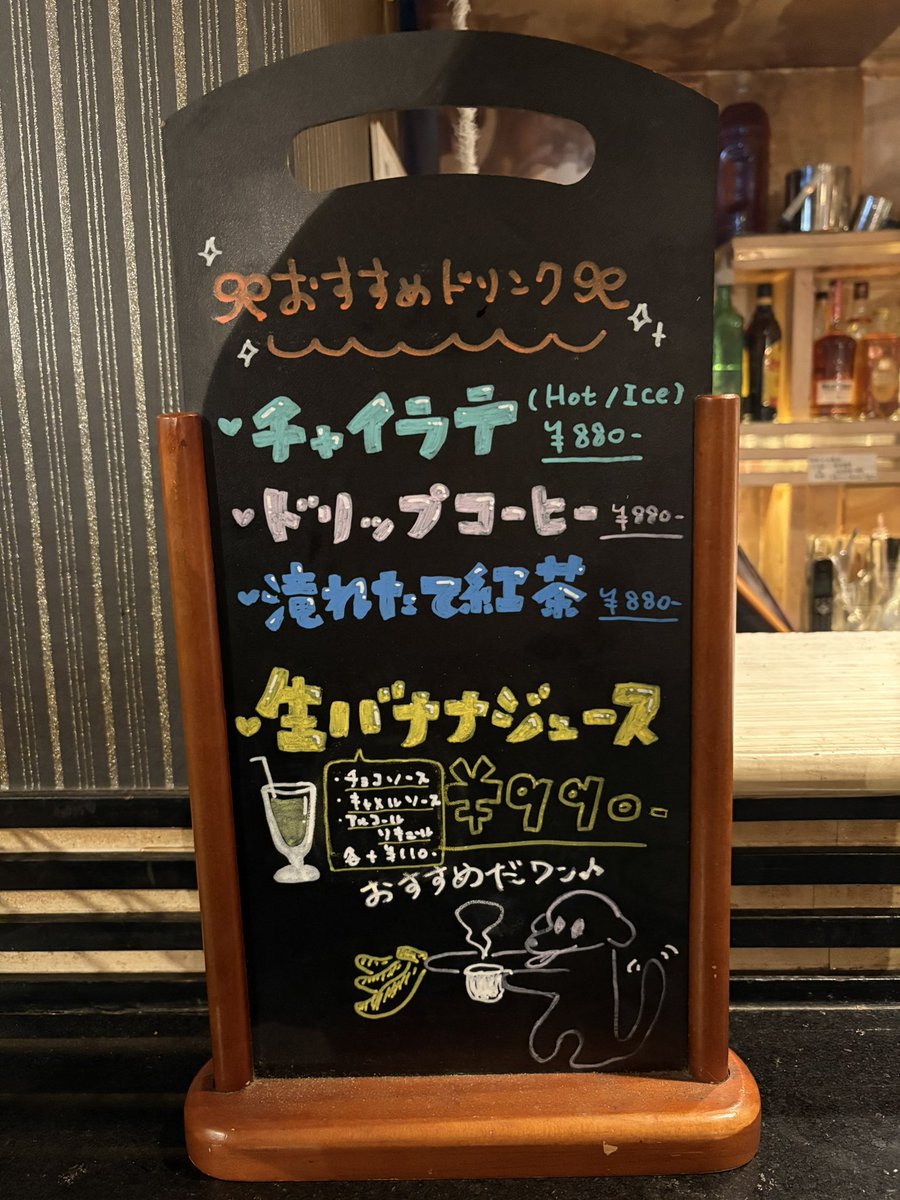 おすすめドリンク
チャイラテ (Hot/Ice)
¥880-
ドリップコーヒー ¥880-
淹れたて紅茶 ¥880-
生バナナジュース
・チョコソース
・キャメルソース
・アルコール
リキュール
各+¥110-
¥990-
おすすめだワン♪